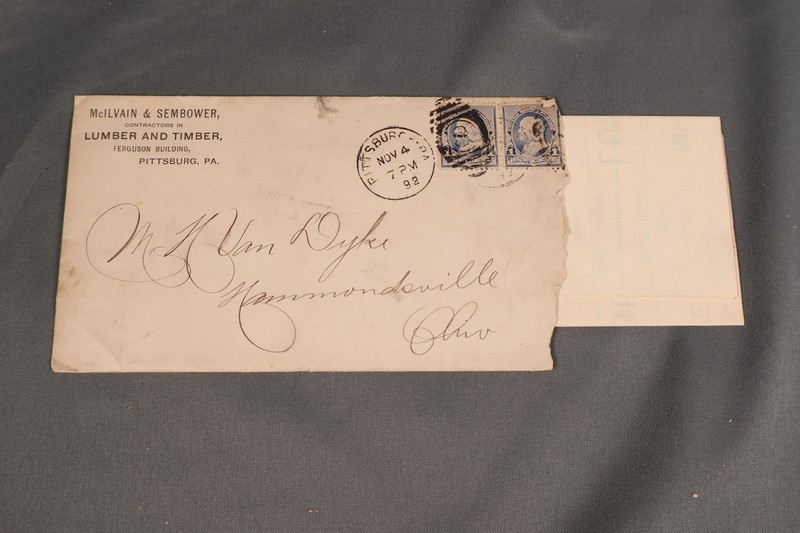 McILVAIN & SEMBOWER,
CONTRACTORS IN
LUMBER AND TIMBER,
FERGUSON BUILDING,
PITTSBURG, PA.
PITTSBURG PA
NOV 4
7 PM
92
1 1
M H Van Dyke
Hammondsville
Ohio